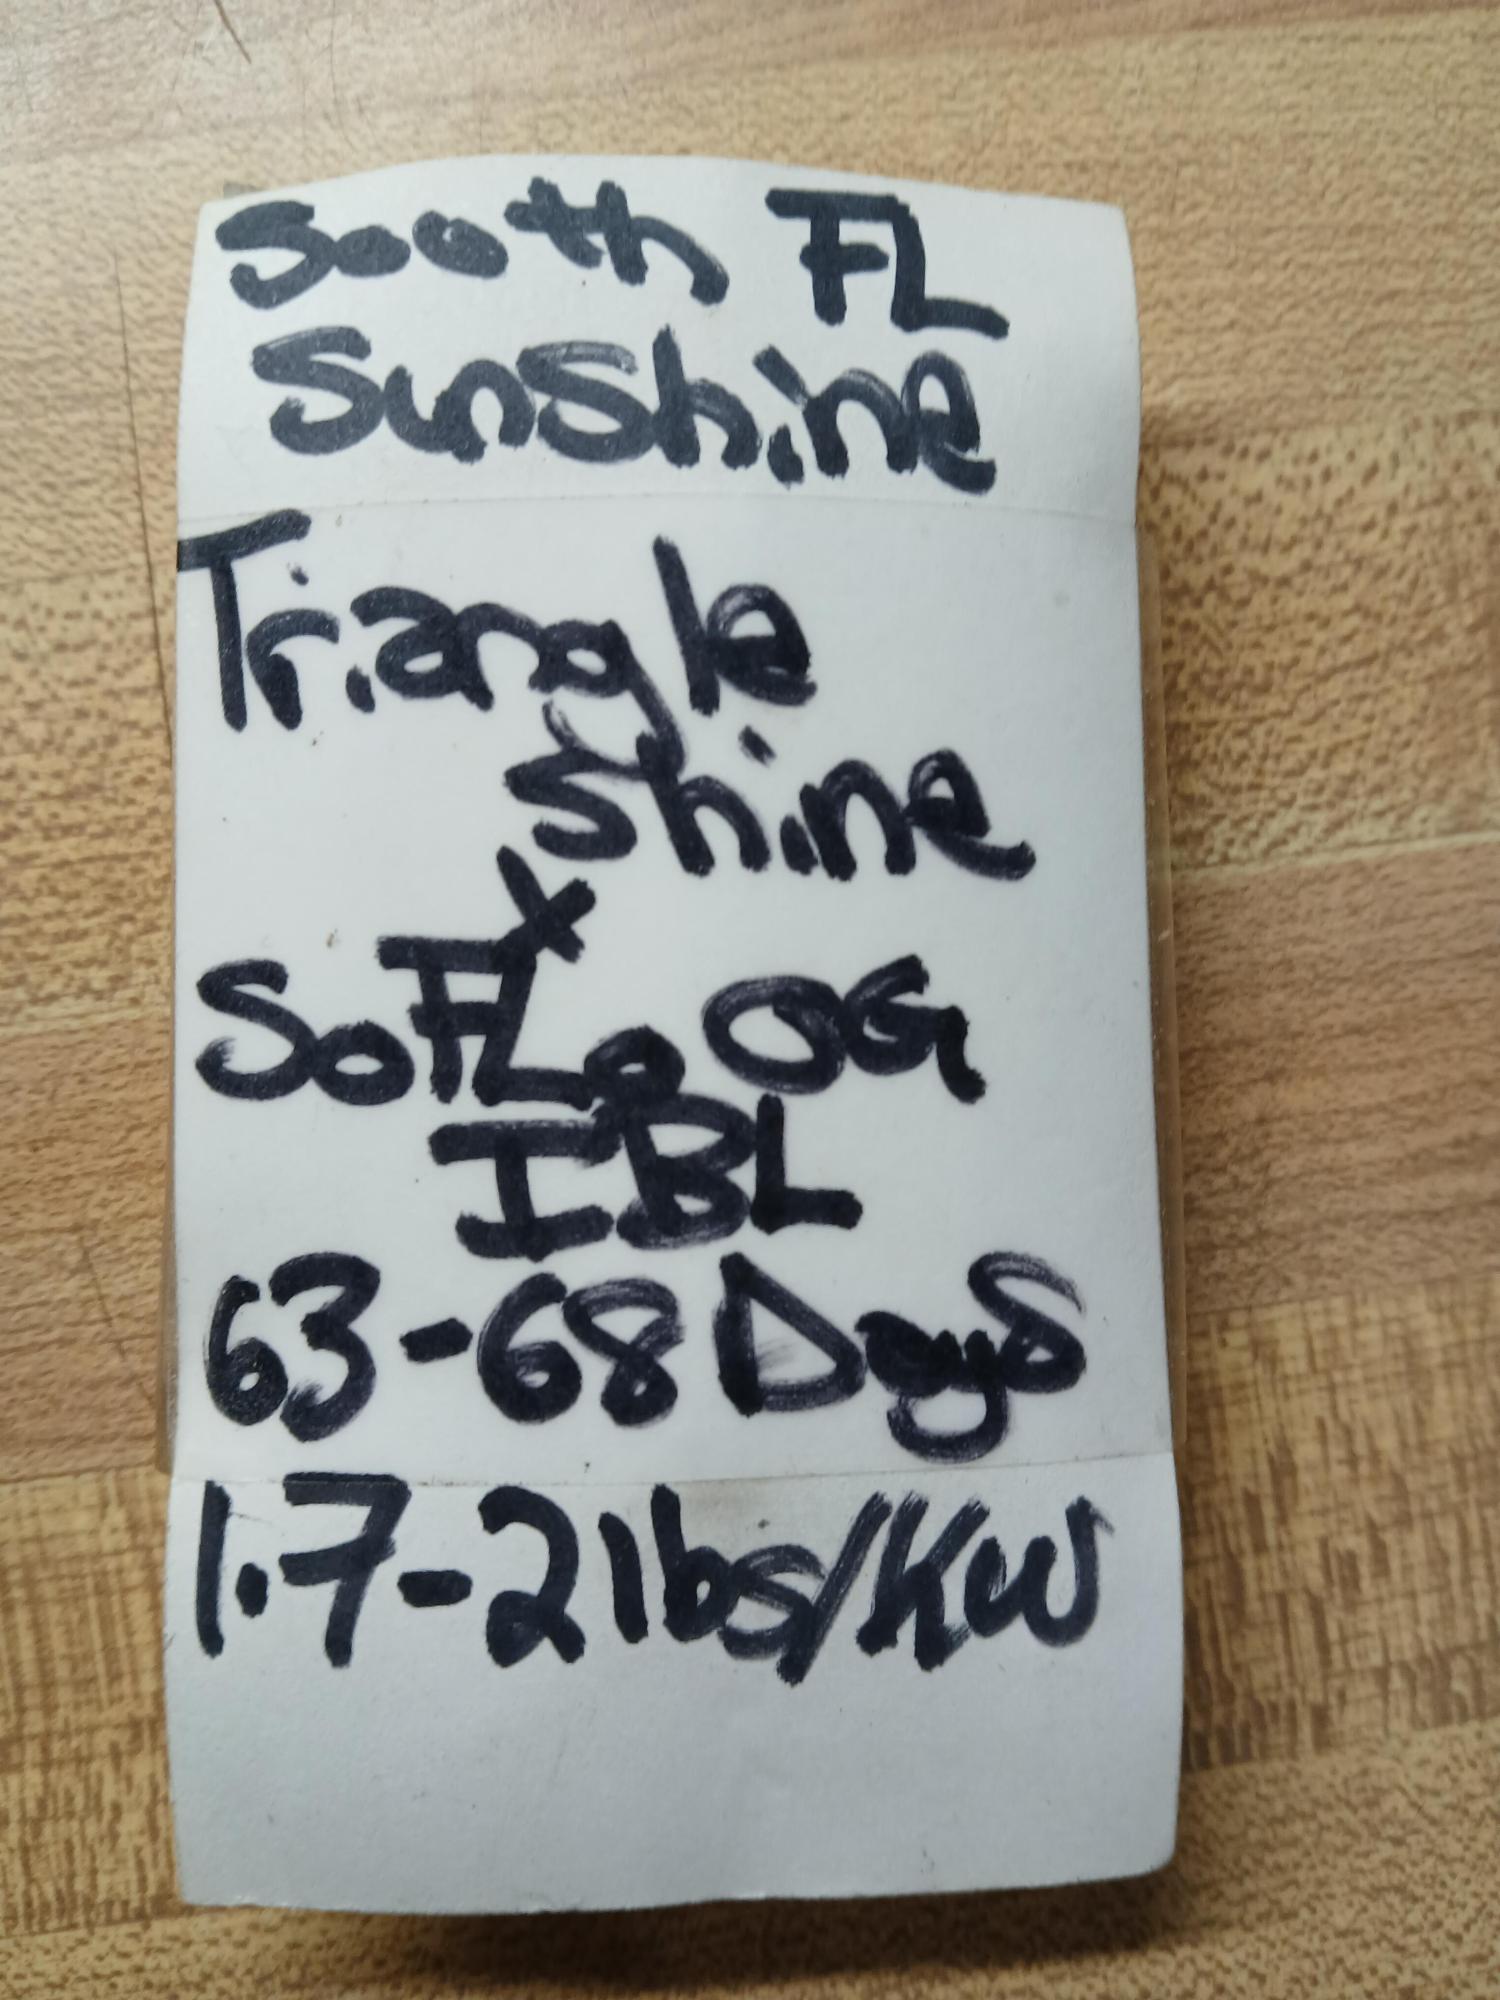 South FL
Sunshine
Triangle
Shine
x
SoFLo OG
IBL
63-68 Days
1.7-2lbs/KW